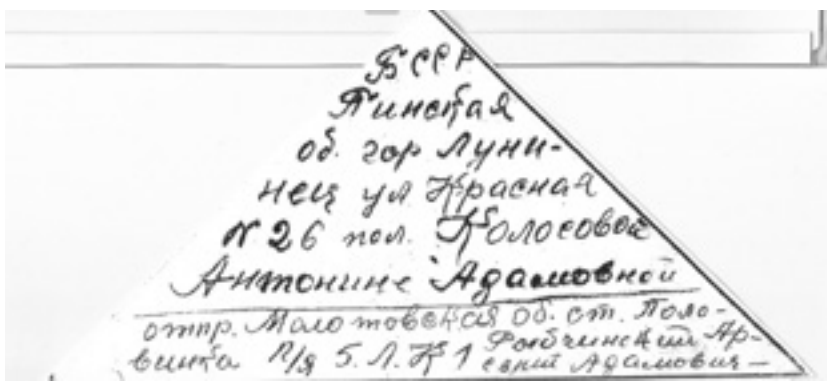 БССР
Пинская
об. гор Луни-
нец ул Красная
N 26 пол. Колосовой
Антонине Адамовной
отпр. Молотовская об. ст. Поло-
винка п/я 5. Л. К 1 Рабчинский Ар-
сений Адамович